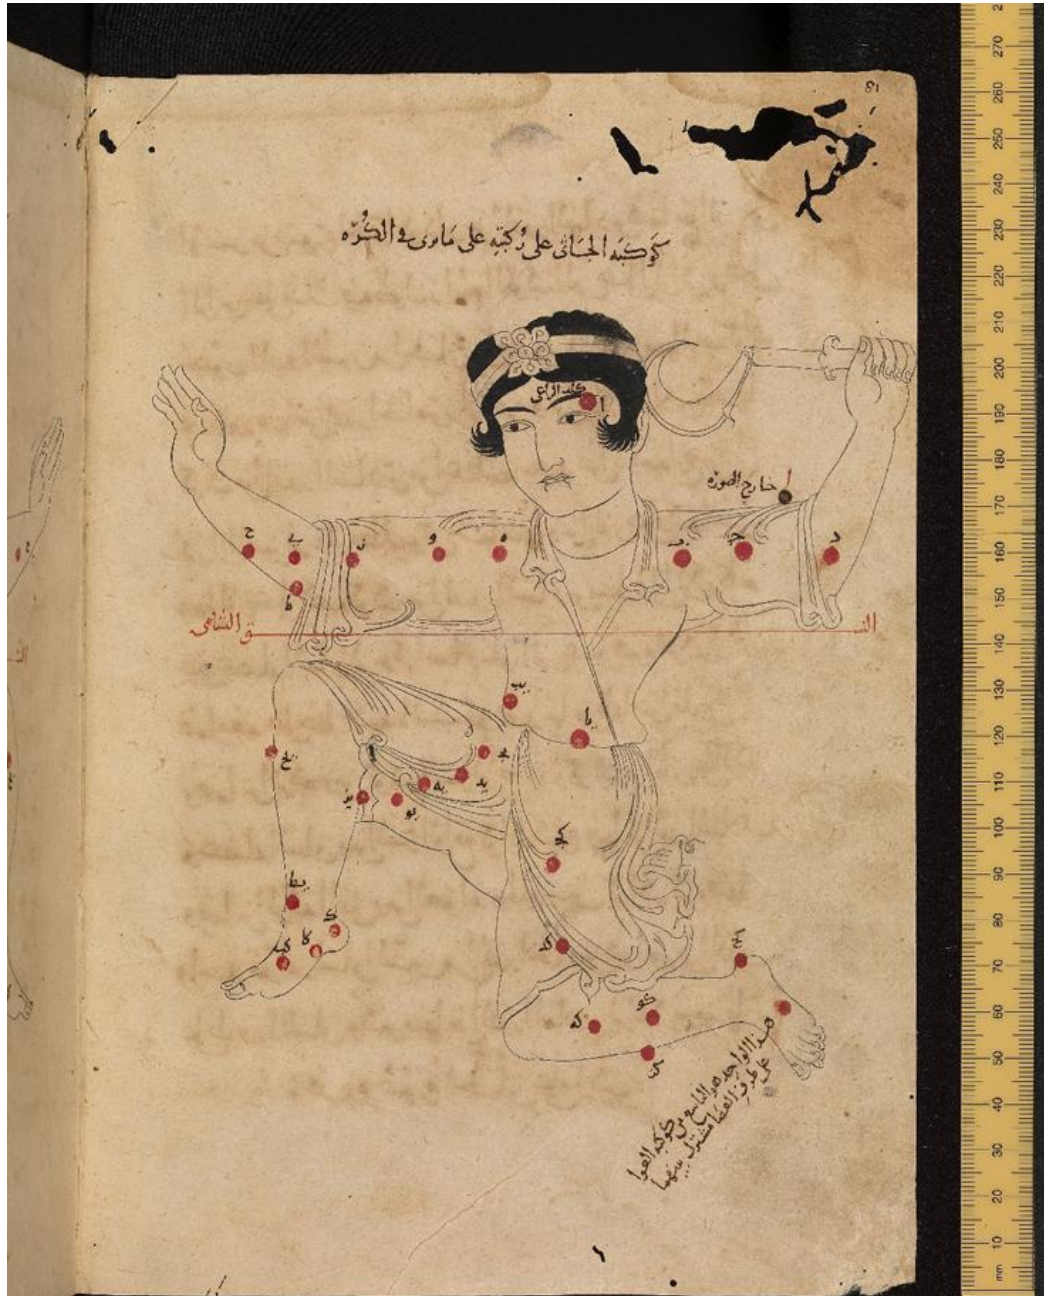 81
كَوكبَه الجَاثى على رُكبتِه على مَا يرى فى الكُرَه
كلب الراعى
ا
خارج الصوره
ا
ح
ى
ز
و
ه
ب
ج
د
ط
النسق الشامى
يب
يا
يح
يج
يد
يه
يو
يز
كج
يط
ك
كا
كب
كد
كح
كه
كو
كز
هذا الواحد هو التاسع من كوكبه العوا
على طرف العصا مشترك بينهما
mm 10 20 30 40 50 60 70 80 90 100 110 120 130 140 150 160 170 180 190 200 210 220 230 240 250 260 270